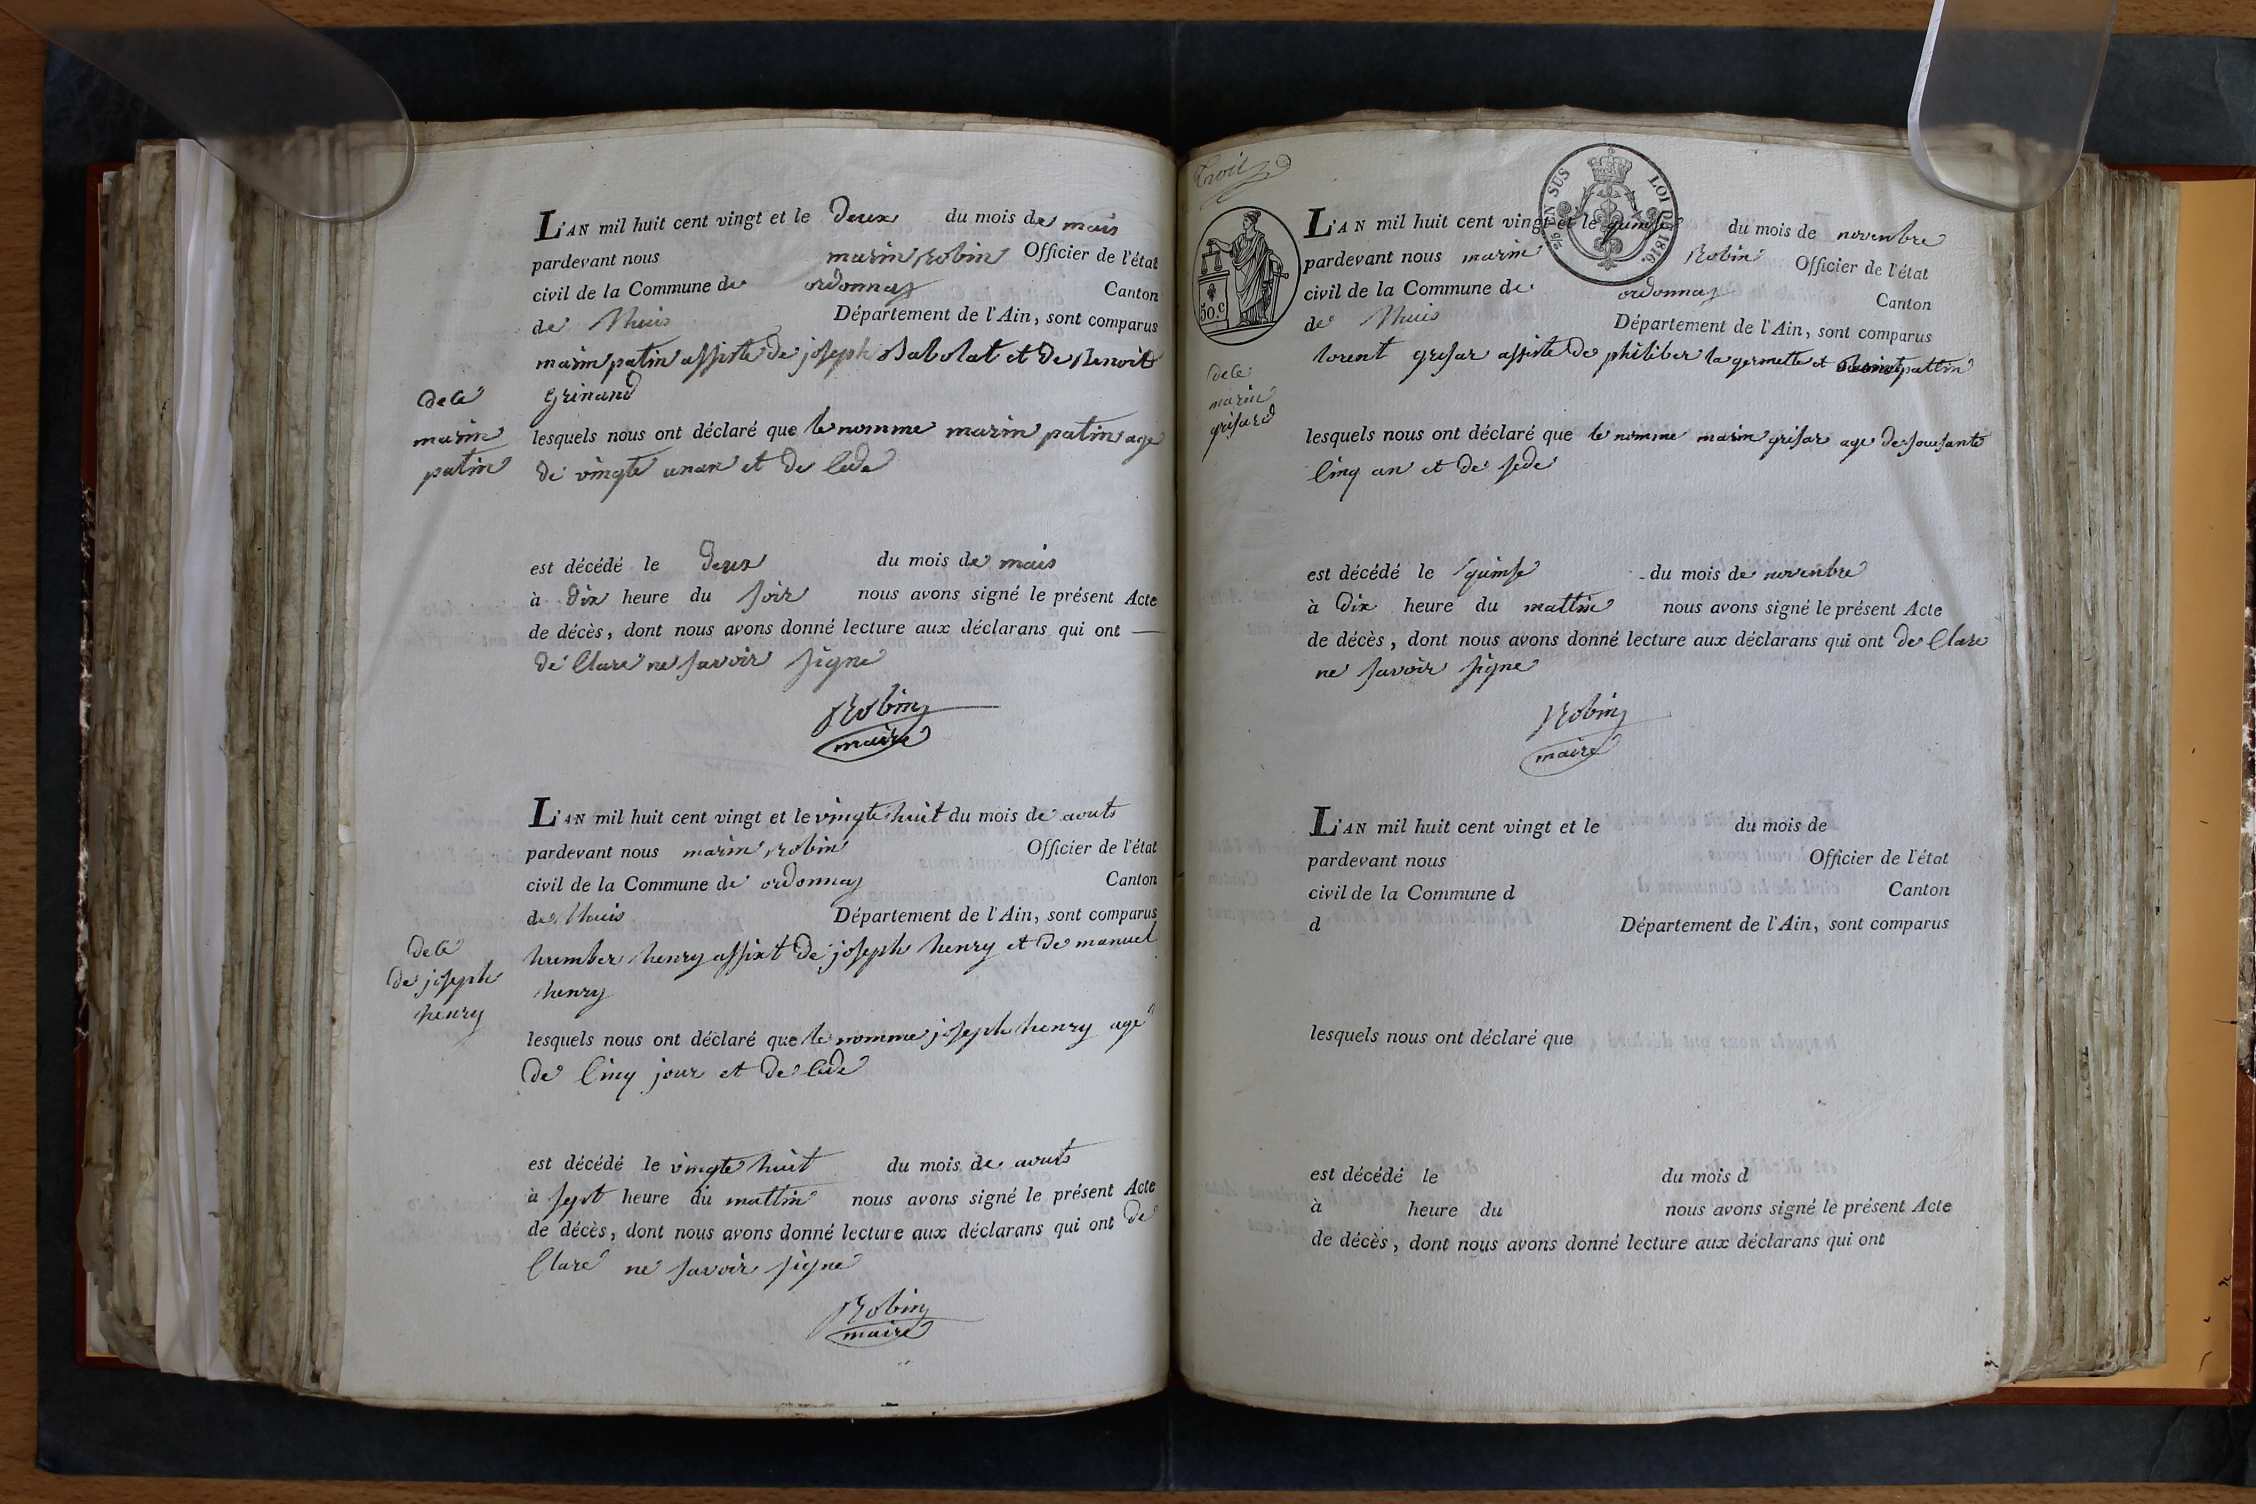 L'AN mil huit cent vingt et le deux du mois de mais
pardevant nous marin Robin Officier de l'état
civil de la Commune de ordonnas Canton
de lhuis Département de l'Ain, sont comparus
marin patin assiste de joseph Babolat et de Benoit
Grinand
dece
marin
patin
lesquels nous ont déclaré que le nomme marin patin age
de vingte unan et de cede
est décédé le deux du mois de mais
à dix heure du soir nous avons signé le présent Acte
de décès, dont nous avons donné lecture aux déclarans qui ont
de clare ne savoir signe
Robin
maire
L'AN mil huit cent vingt et le vingte huit du mois de aouts
pardevant nous marin Robin Officier de l'état
civil de la Commune de ordonnas Canton
de lhuis Département de l'Ain, sont comparus
humber henry assixt de joseph henry et de manuel
henry
dece
de joseph
henry
lesquels nous ont déclaré que le nomme joseph henry age
de cinq jour et de cede
est décédé le vingte huit du mois de aouts
à sept heure du mattin nous avons signé le présent Acte
de décès, dont nous avons donné lecture aux déclarans qui ont de
clare ne savoir signe
Robin
maire
troit
EN SUS LOI DE 1816.
50.c
L'AN mil huit cent vingt et le quinse du mois de novenbre
pardevant nous marin Robin Officier de l'état
civil de la Commune de ordonnas Canton
de lhuis Département de l'Ain, sont comparus
lorent grisar assiste de philiber la germette et pattin
dece
marin
grisard
lesquels nous ont déclaré que le nomme marin grisar age de sousante
cinq an et de sede
est décédé le quinse du mois de novenbre
à dix heure du mattin nous avons signé le présent Acte
de décès, dont nous avons donné lecture aux déclarans qui ont de clare
ne savoir signe
Robin
maire
L'AN mil huit cent vingt et le du mois de
pardevant nous Officier de l'état
civil de la Commune d Canton
d Département de l'Ain, sont comparus
lesquels nous ont déclaré que
est décédé le du mois d
à heure du nous avons signé le présent Acte
de décès, dont nous avons donné lecture aux déclarans qui ont